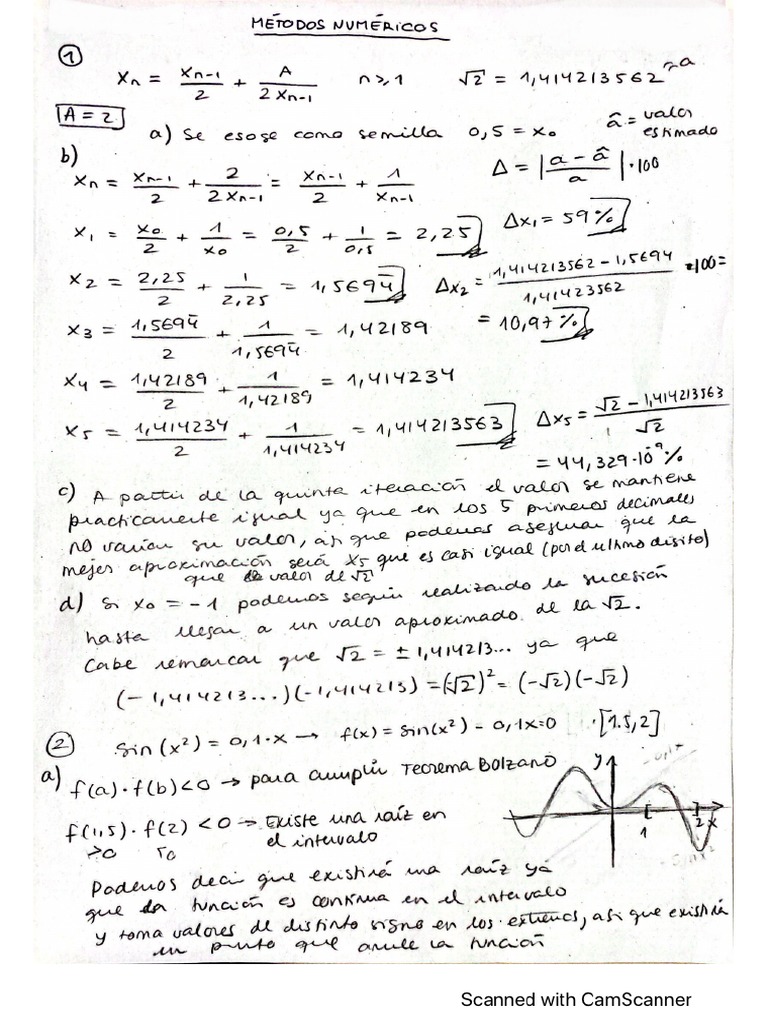 MÉTODOS NUMÉRICOS
①
Xn = Xn-1/2 + A/(2Xn-1) n≥1 √2 = 1,414213562 ~a
A = 2
a) Se esoge como semilla 0,5 = X0 â = valor estimado
b)
Xn = Xn-1/2 + 2/(2Xn-1) = Xn-1/2 + 1/Xn-1 Δ = |(a - â)/a| · 100
X1 = X0/2 + 1/X0 = 0,5/2 + 1/0,5 = 2,25 ΔX1 = 59%
X2 = 2,25/2 + 1/2,25 = 1,5694 ΔX2 = (1,414213562 - 1,5694)/1,41423562 *100 =
= 10,97%
X3 = 1,5694/2 + 1/1,5694 = 1,42189
X4 = 1,42189/2 + 1/1,42189 = 1,414234
X5 = 1,414234/2 + 1/1,414234 = 1,414213563 ΔX5 = (√2 - 1,414213563)/√2
= 44,329·10^-9 %
c) A partir de la quinta iteración el valor se mantiene
practicamente igual ya que en los 5 primeros decimales
no varían su valor, así que podemos asegurar que la
mejor aproximación será X5 que es casi igual (por el ultimo digito)
que el valor de √2
d) Si X0 = -1 podemos seguir realizando la sucesión
hasta llegar a un valor aproximado de la √2.
Cabe remarcar que √2 = ± 1,414213... ya que
(-1,414213...)(-1,414213) = (-√2)² = (-√2)(-√2)
② Sin(x²) = 0,1·x → f(x) = sin(x²) - 0,1x=0 ·[1.5,2]
a) f(a)·f(b)<0 → para cumplir Teorema Bolzano
y
f(1,5)·f(2) <0 → Existe una raíz en
>0 <0 el intervalo
1 2 x
Podemos decir que existirá una raíz ya
que la función es continua en el intervalo
y toma valores de distinto signo en los extremos, así que existirá
un punto que anule la función
Scanned with CamScanner